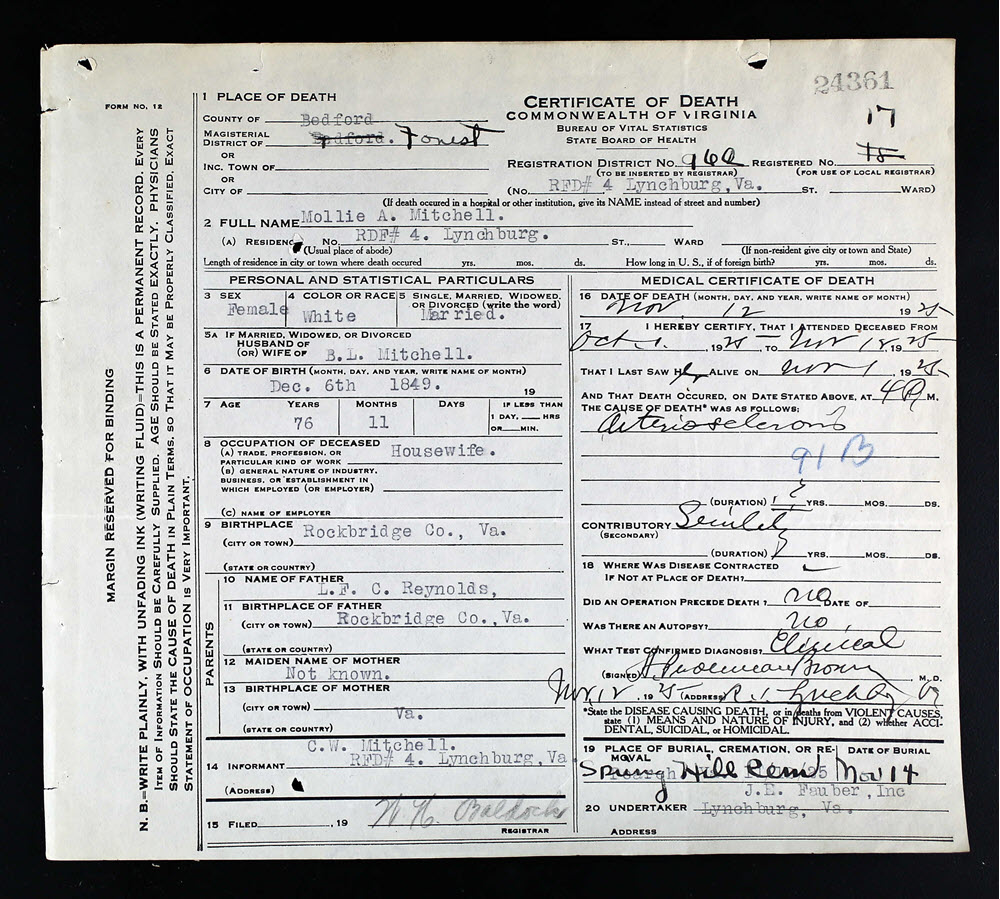 24361
FORM NO. 12
MARGIN RESERVED FOR BINDING
N. B.—WRITE PLAINLY, WITH UNFADING INK (WRITING FLUID)—THIS IS A PERMANENT RECORD. EVERY
ITEM OF INFORMATION SHOULD BE CAREFULLY SUPPLIED. AGE SHOULD BE STATED EXACTLY. PHYSICIANS
SHOULD STATE THE CAUSE OF DEATH IN PLAIN TERMS, SO THAT IT MAY BE PROPERLY CLASSIFIED. EXACT
STATEMENT OF OCCUPATION IS VERY IMPORTANT.
1 PLACE OF DEATH
COUNTY OF Bedford
MAGISTERIAL DISTRICT OF Bedford. Forest
OR
INC. TOWN OF
OR
CITY OF
CERTIFICATE OF DEATH
COMMONWEALTH OF VIRGINIA
BUREAU OF VITAL STATISTICS
STATE BOARD OF HEALTH
17
REGISTRATION DISTRICT NO. 96a REGISTERED NO. 15
(TO BE INSERTED BY REGISTRAR) (FOR USE OF LOCAL REGISTRAR)
(No. RFD# 4 Lynchburg, Va. ST. WARD)
(If death occured in a hospital or other institution, give its NAME instead of street and number)
2 FULL NAME Mollie A. Mitchell.
(A) RESIDENCE No. RDF# 4. Lynchburg. ST., WARD
(Usual place of abode) (If non-resident give city or town and State)
Length of residence in city or town where death occured yrs. mos. ds. How long in U. S., if of foreign birth? yrs. mos. ds.
PERSONAL AND STATISTICAL PARTICULARS
3 SEX Female
4 COLOR OR RACE White
5 SINGLE, MARRIED, WIDOWED, OR DIVORCED (write the word) Married.
5A IF MARRIED, WIDOWED, OR DIVORCED
HUSBAND OF
(OR) WIFE OF B.L. Mitchell.
6 DATE OF BIRTH (MONTH, DAY, AND YEAR, WRITE NAME OF MONTH)
Dec. 6th 1849. 19
7 AGE YEARS MONTHS DAYS IF LESS THAN
76 11 1 DAY, HRS
OR MIN.
8 OCCUPATION OF DECEASED
(A) TRADE, PROFESSION, OR
PARTICULAR KIND OF WORK Housewife.
(B) GENERAL NATURE OF INDUSTRY,
BUSINESS, OR ESTABLISHMENT IN
WHICH EMPLOYED (OR EMPLOYER)
(C) NAME OF EMPLOYER
9 BIRTHPLACE Rockbridge Co., Va.
(CITY OR TOWN)
(STATE OR COUNTRY)
PARENTS
10 NAME OF FATHER
L.F. C. Reynolds,
11 BIRTHPLACE OF FATHER
(CITY OR TOWN) Rockbridge Co., Va.
(STATE OR COUNTRY)
12 MAIDEN NAME OF MOTHER
Not known.
13 BIRTHPLACE OF MOTHER
(CITY OR TOWN) Va.
(STATE OR COUNTRY)
C.W. Mitchell.
14 INFORMANT RFD# 4. Lynchburg, Va
(ADDRESS)
15 FILED , 19 W. H. Baldock
REGISTRAR
MEDICAL CERTIFICATE OF DEATH
16 DATE OF DEATH (MONTH, DAY, AND YEAR, WRITE NAME OF MONTH)
Nov. 12 1925
17 I HEREBY CERTIFY, THAT I ATTENDED DECEASED FROM
Oct. 1. , 1925 TO Nov 12, 1925
THAT I LAST SAW Her ALIVE ON Nov 1 , 1925
AND THAT DEATH OCCURED, ON DATE STATED ABOVE, AT 4 P M.
THE CAUSE OF DEATH* WAS AS FOLLOWS:
Arteriosclerosis
91 B
(DURATION) ? YRS. MOS. DS.
CONTRIBUTORY Senility
(SECONDARY)
(DURATION) YRS. MOS. DS.
18 WHERE WAS DISEASE CONTRACTED
IF NOT AT PLACE OF DEATH?
DID AN OPERATION PRECEDE DEATH? no DATE OF
WAS THERE AN AUTOPSY? no
WHAT TEST CONFIRMED DIAGNOSIS? Clinical
(SIGNED) Brown M. D.
Nov. 12, 1925 (ADDRESS) Lynchburg Va
*State the DISEASE CAUSING DEATH, or in deaths from VIOLENT CAUSES,
state (1) MEANS AND NATURE OF INJURY, and (2) whether ACCI-
DENTAL, SUICIDAL, or HOMICIDAL.
19 PLACE OF BURIAL, CREMATION, OR RE-MOVAL DATE OF BURIAL
Spring Hill Cemt Nov 14
J.E. Fauber, Inc
20 UNDERTAKER Lynchburg, Va.
ADDRESS